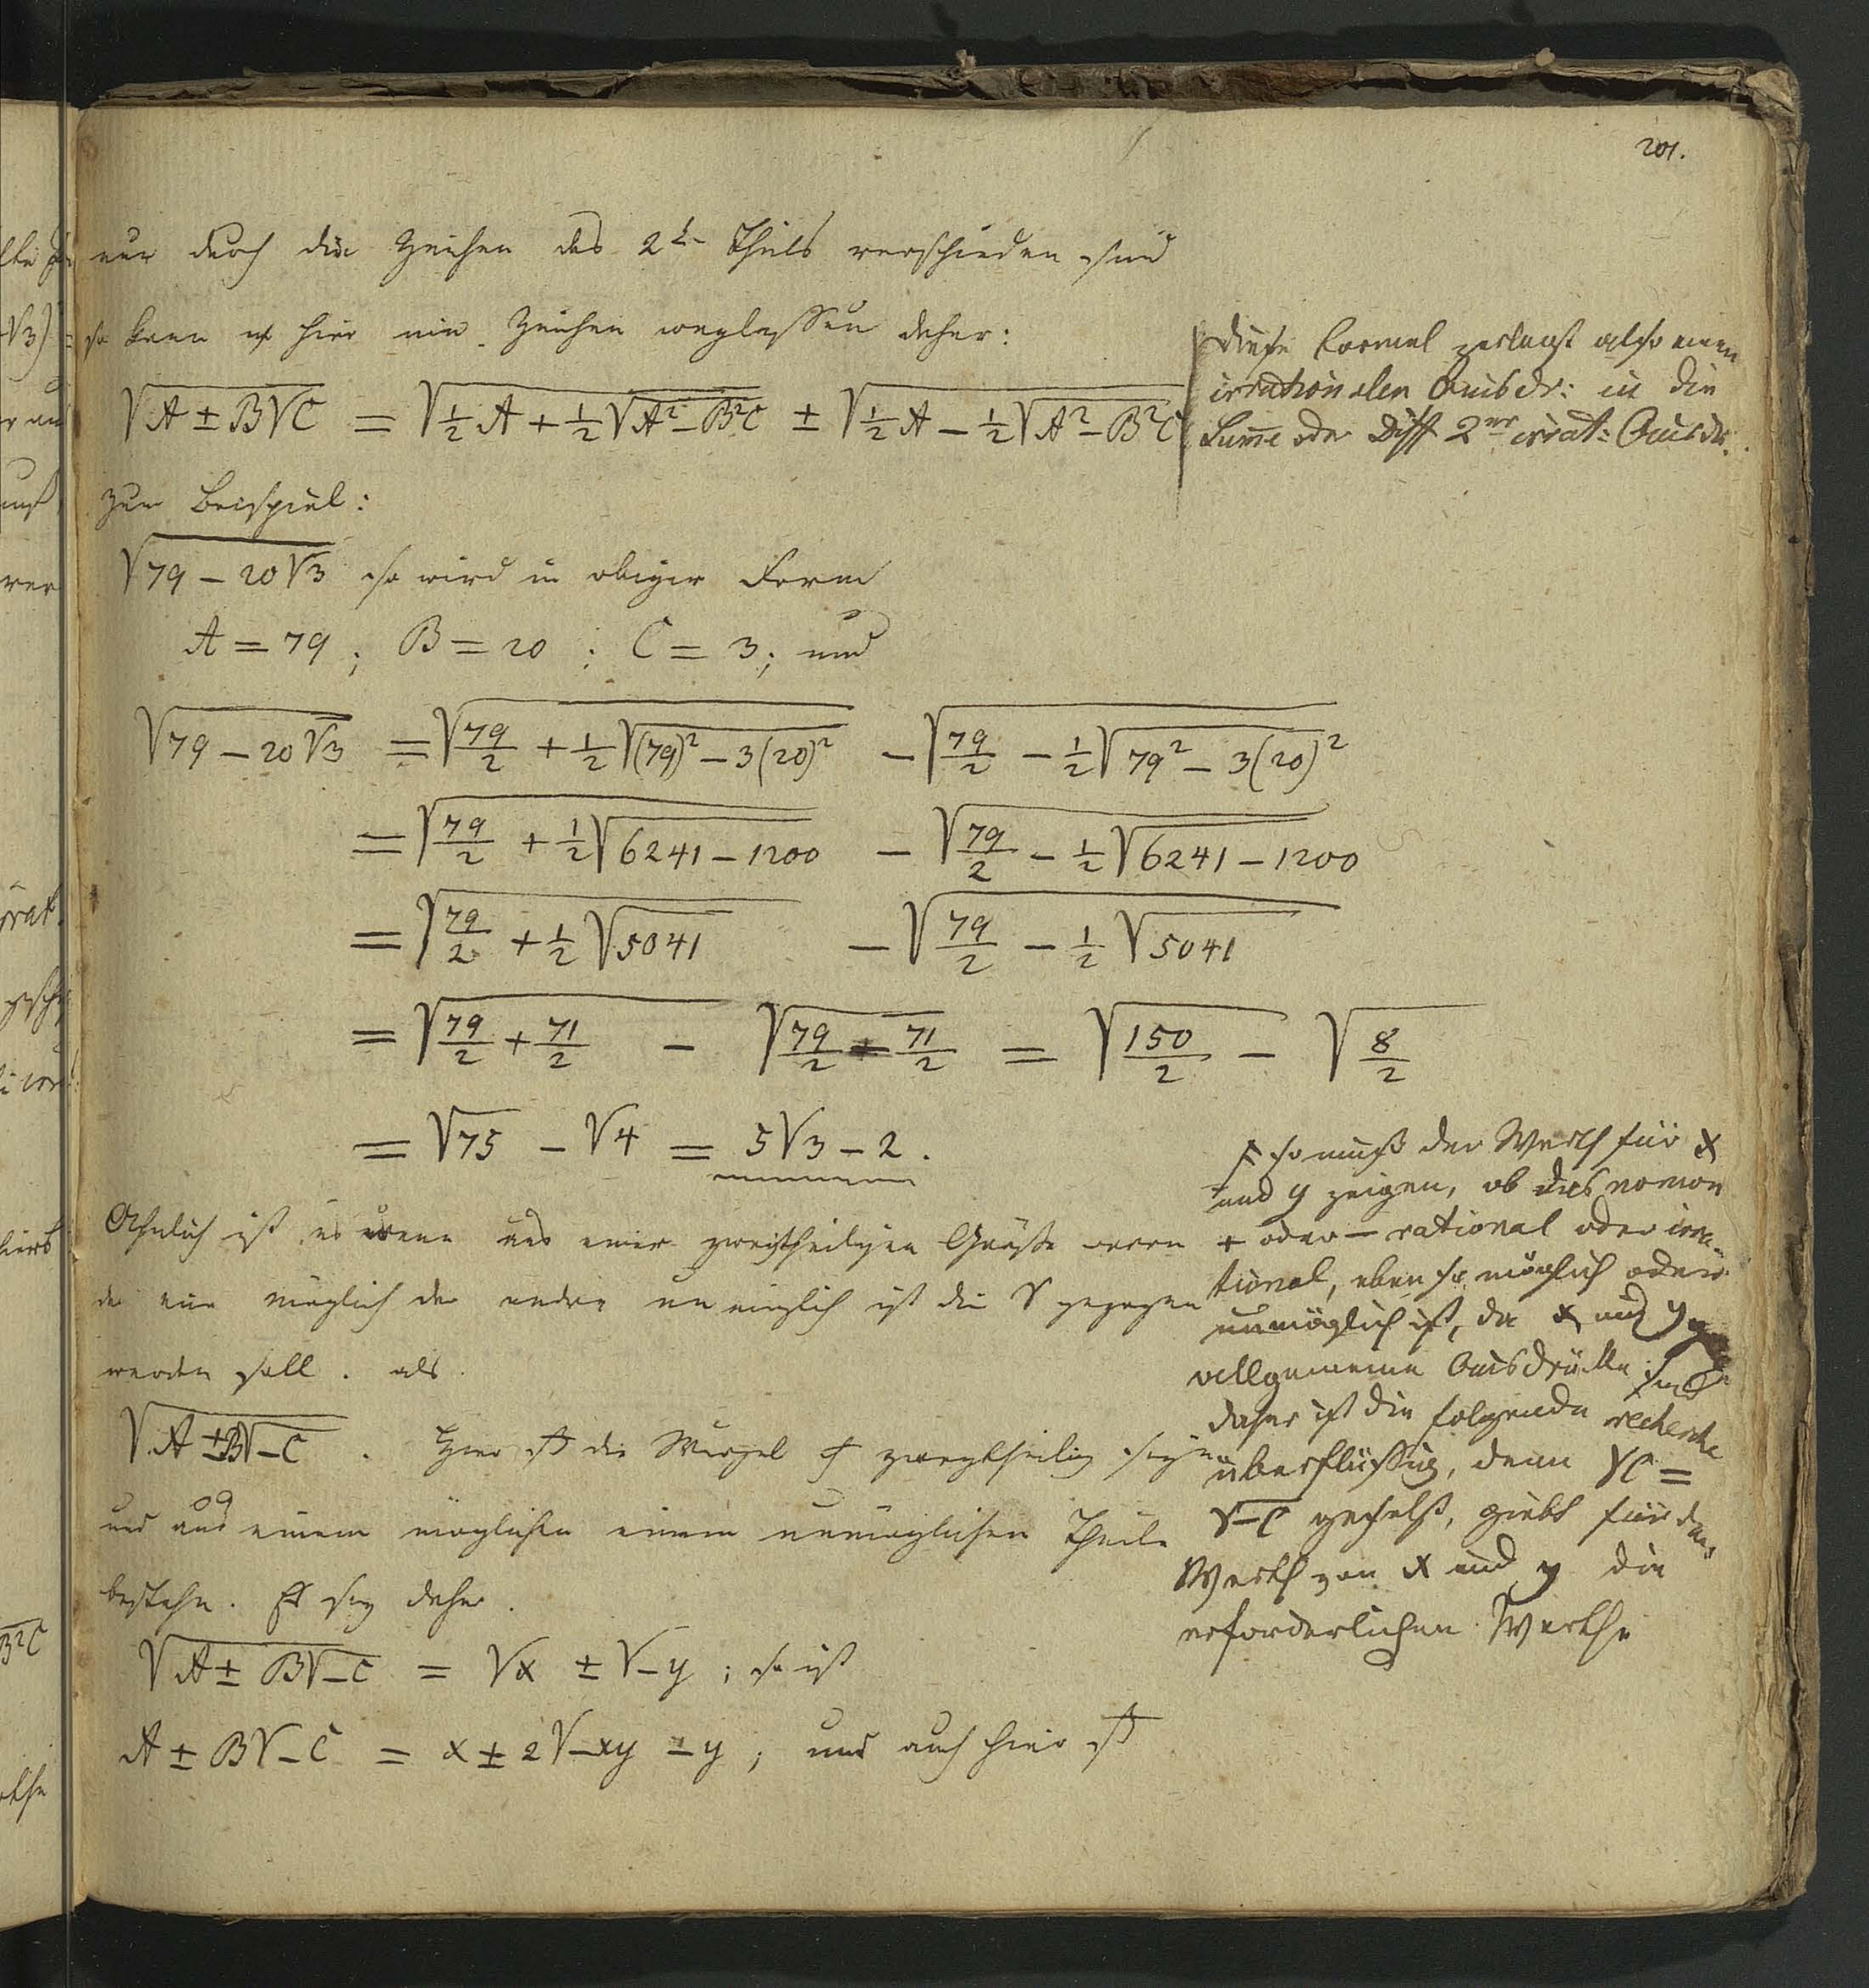 201.
nur durch die Zeichen des 2t. Theils verschieden sind
so kann hier ein Zeichen weglassen daher:
√(A ± B√C) = √(½A + ½√(A² − B²C)) ± √(½A − ½√(A² − B²C))
Diese Formel zerlegt also einen
irrationalen Ausdr: in die
Summe oder Diff 2er irrat: Ausdr.
Zum Beispiel:
√(79 − 20√3) so wird in obiger Form
A = 79; B = 20; C = 3; und
√(79 − 20√3) = √(79/2 + ½√((79)² − 3(20)²)) − √(79/2 − ½√(79² − 3(20)²))
= √(79/2 + ½√(6241 − 1200)) − √(79/2 − ½√(6241 − 1200))
= √(79/2 + ½√5041) − √(79/2 − ½√5041)
= √(79/2 + 71/2) − √(79/2 − 71/2) = √(150/2) − √(8/2)
= √75 − √4 = 5√3 − 2.
Ähnlich ist es wenn aus einer zweitheiligen Größe wovon
der eine möglich der andre unmöglich ist die √ gezogen
werden soll. als
√(A ± B√−C). Hier die Wurzel zweytheilig seyn
und aus einem möglichen einem unmöglichen Theile
bestehn. Es sey daher.
√(A ± B√−C) = √x ± √−y; so ist
A ± B√−C = x ± 2√−xy − y; und auch hier ist
so muß der Werth für x
und y zeigen, ob das nomen
+ oder − rational oder irra-
tional, eben so möglich oder
unmöglich ist, da x und y
allgemeine Ausdrücke sind
daher ist die folgende recherche
überflüssig, denn √C =
√−C gesetzt, giebt für den
Werth von x und y die
erforderlichen Werthe